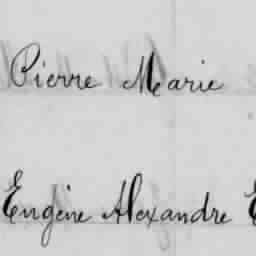 Pierre Marie
Eugène Alexandre